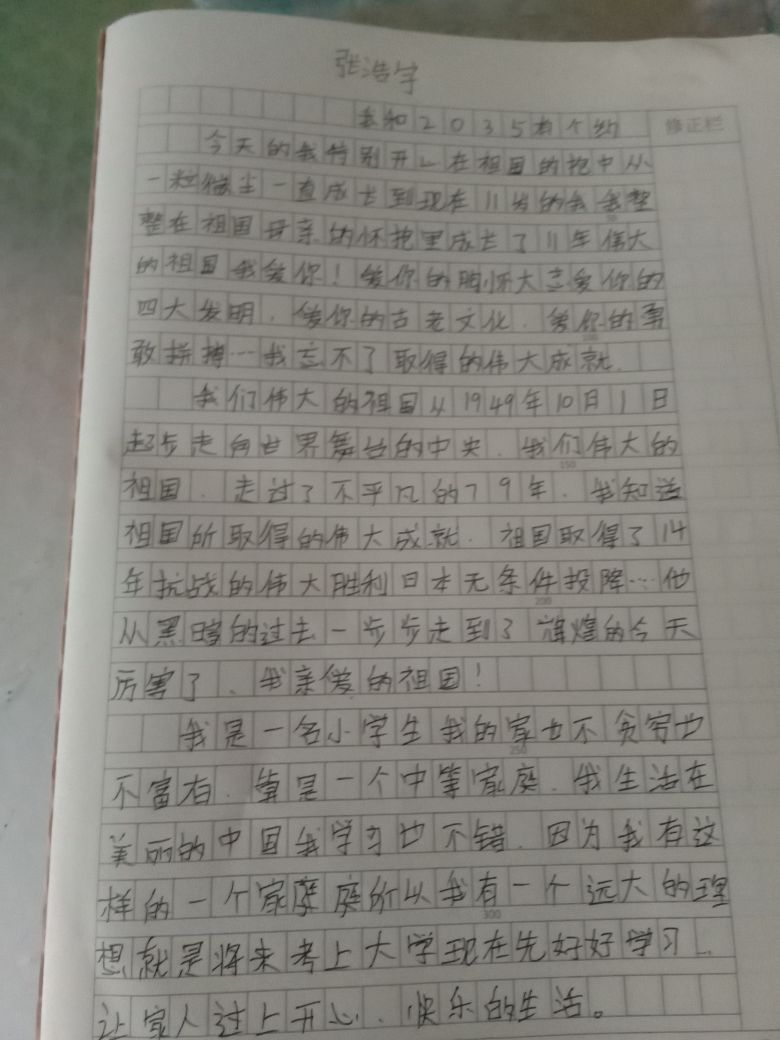 张浩宇
我和2035有个约
修正栏
今天的我特别开心在祖国的抱中从
一粒微尘一直成长到现在11岁的我我整
整在祖国母亲的怀抱里成长了11年伟大
的祖国我爱你！爱你的胸怀大志爱你的
四大发明，爱你的古老文化，爱你的勇
敢拼搏…我忘不了取得的伟大成就.
100
我们伟大的祖国从1949年10月1日
起步走向世界舞台的中央.我们伟大的
150
祖国.走过了不平凡的79年.我知道
祖国所取得的伟大成就.祖国取得了14
年抗战的伟大胜利日本无条件投降…他
200
从黑暗的过去一步步走到了辉煌的今天
厉害了、我亲爱的祖国！
我是一名小学生我的家也不贫穷也
250
不富有.算是一个中等家庭.我生活在
美丽的中国我学习也不错.因为我有这
样的一个家庭庭所以我有一个远大的理
300
想就是将来考上大学现在先好好学习.
让家人过上开心、快乐的生活。